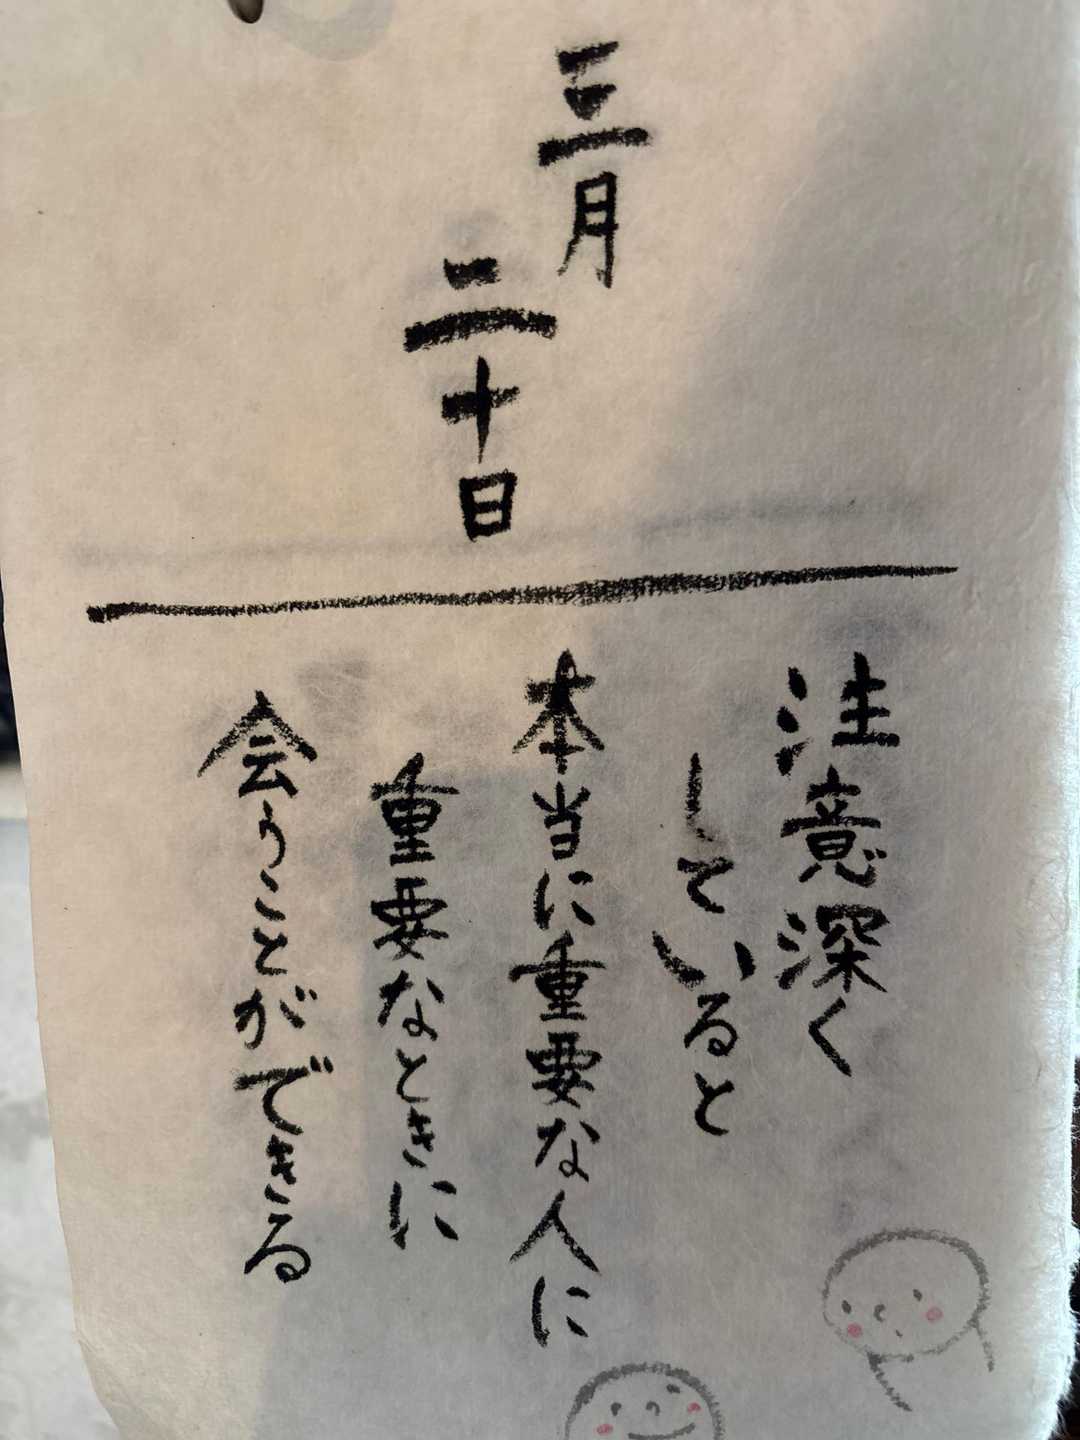 三月
二十日
注意深く
していると
本当に重要な人に
重要なときに
会うことができる